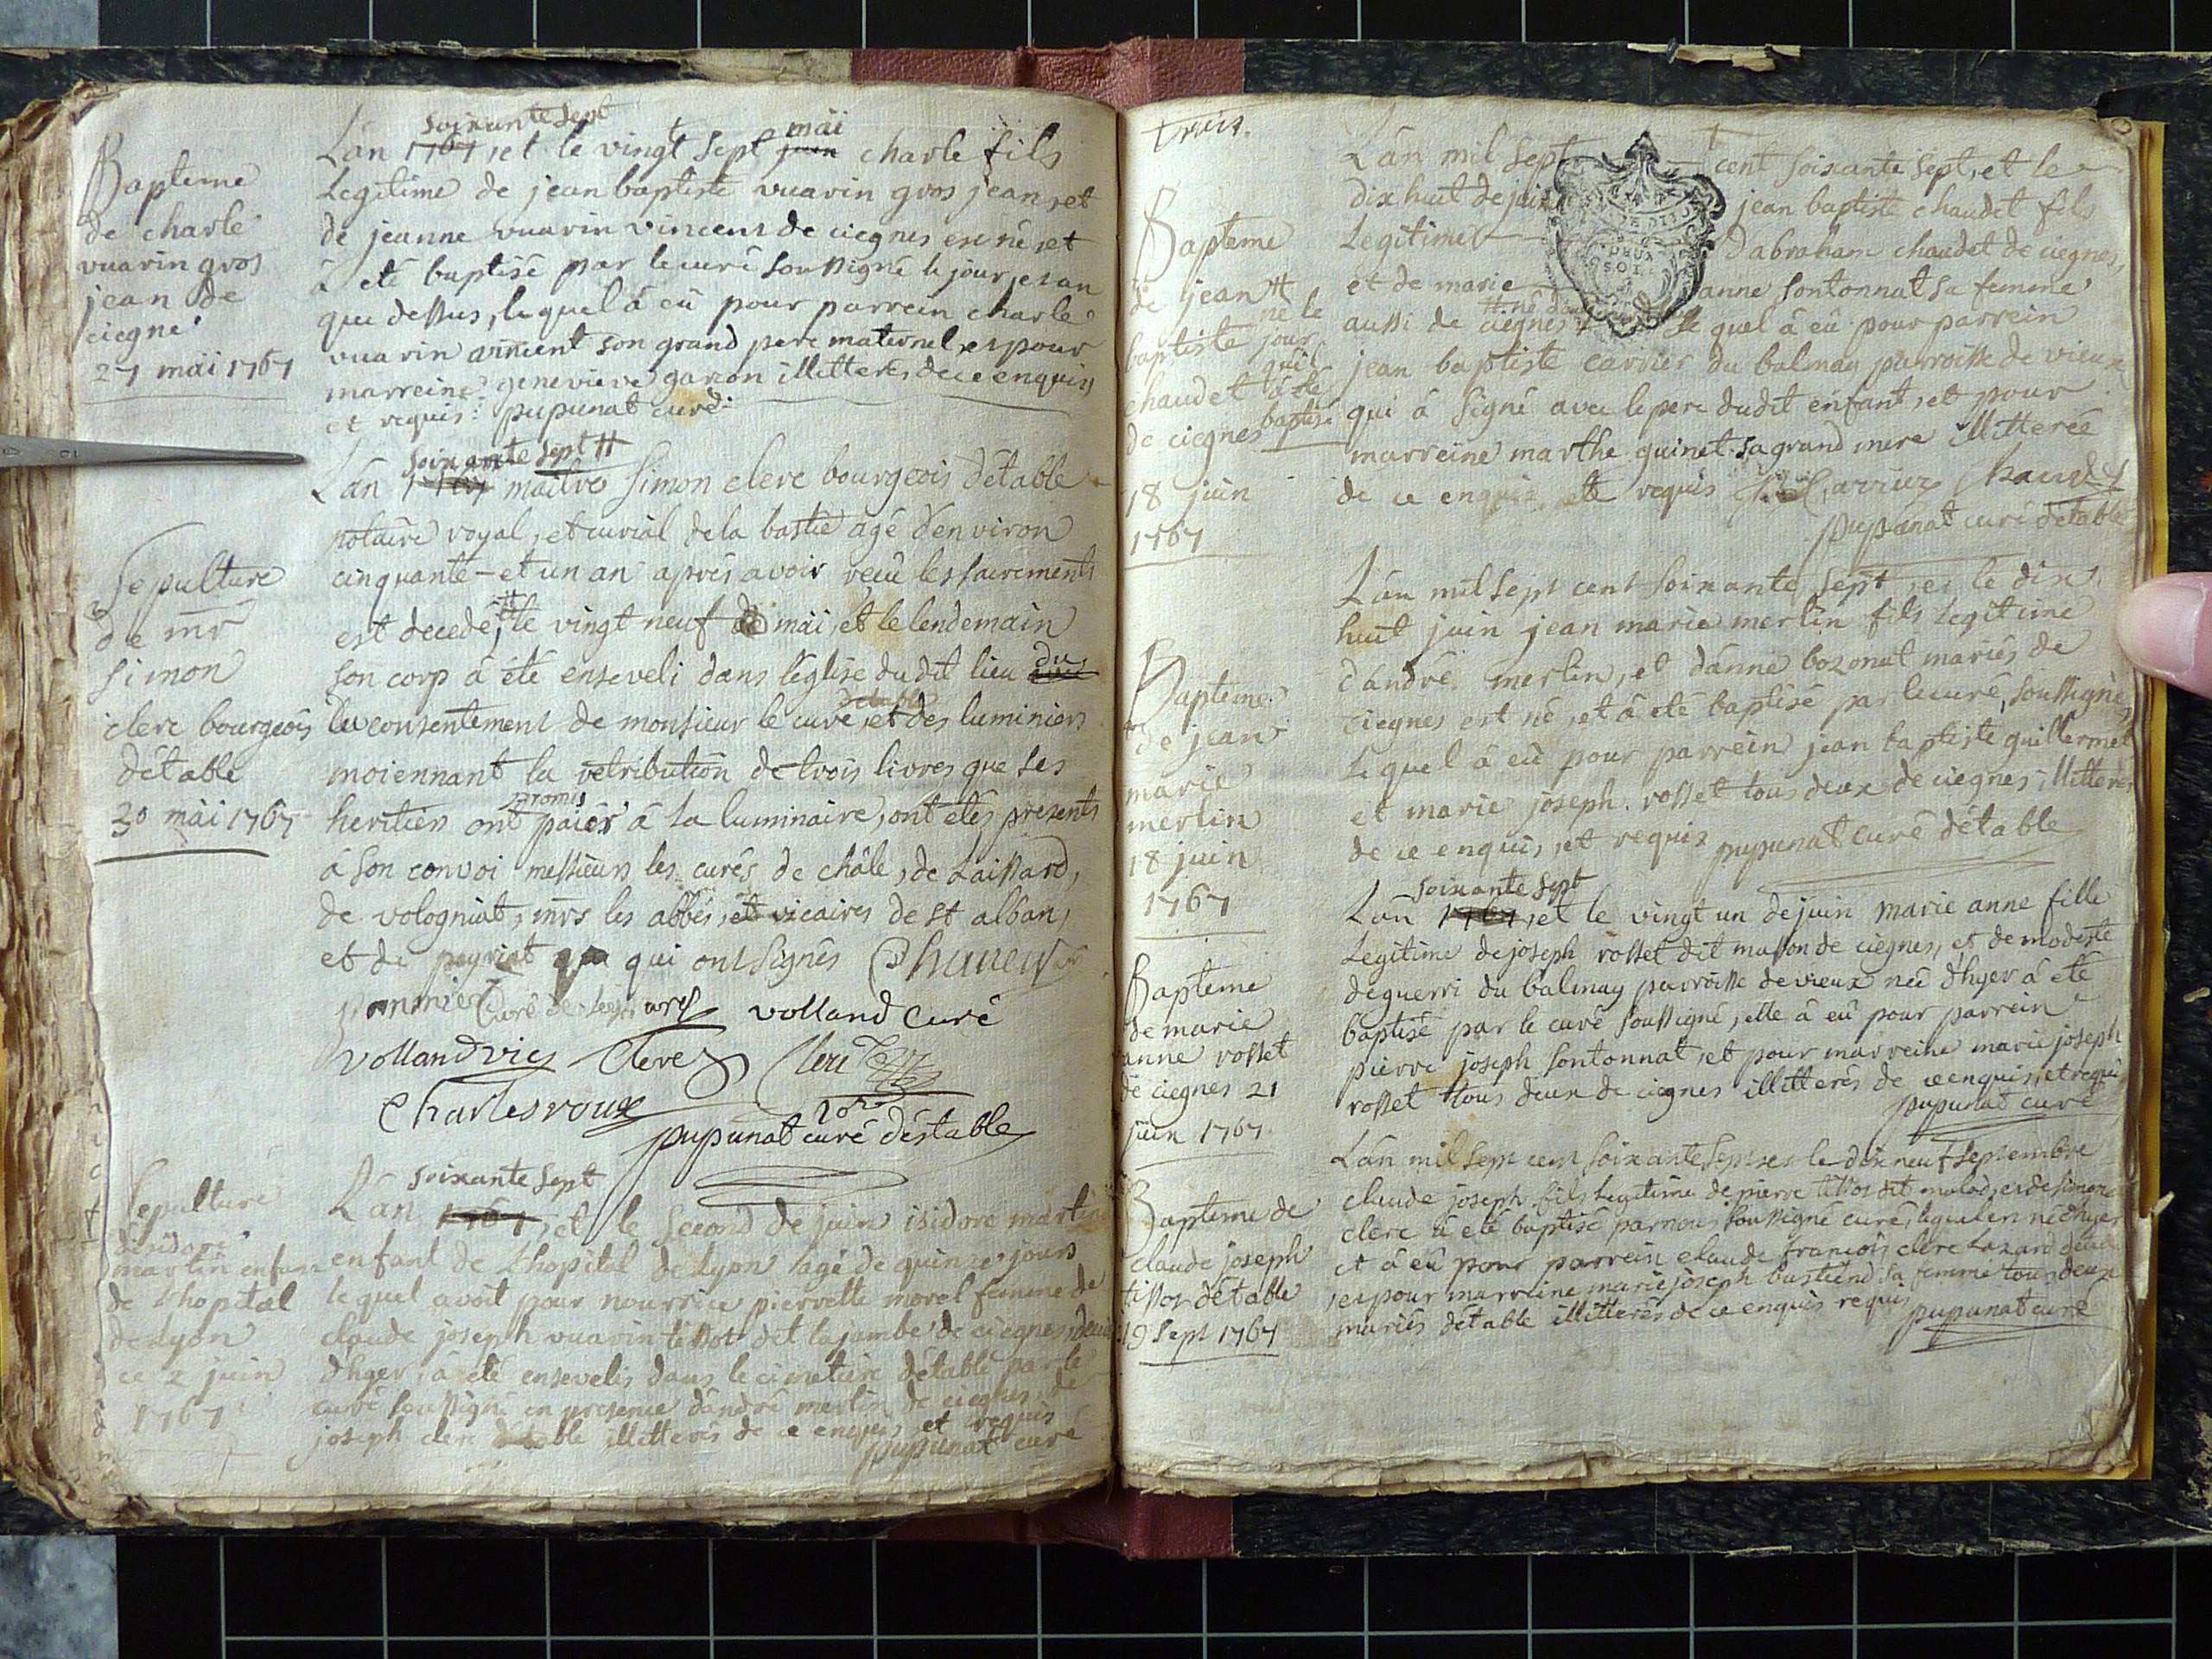 Bapteme
de charle
vuarin gros
jean de
ciegne
27 mai 1767
soixante sept
L'an 1767, et le vingt sept juin mai charle fils
Legitime de jean baptiste vuarin gros jean, et
de jeanne vuarin vincent de ciegnes est né, et
à eté baptisé par le curé soussigné le jour, et an
que dessus, lequel à eû pour parrein charle
vuarin ancient son grand pere maternel, et pour
marreine genevieve garon illitterés de ce enquis
et requis: pupunat curé
Sepulture
de mr
simon
clerc bourgeois
détable
30 mai 1767
soixante sept #
L'an 1767 maitre simon clerc bourgeois détable
notaire royal, et curial de la bastie agé d'environ
cinquante - et un an aprés avoir reçû les sacrements
est decedé, # le vingt neuf de mai, et le lendemain
son corp à été enseveli dans l'église dudit lieu du
consentement de monsieur le curé, et des luminiers
moiennant la retribution de trois livres que ses
heritiers ont promis paier à la luminaire, ont etés presents
à son convoi messieurs les curés de châle, de Laissard,
de volognat, mrs les abbés, et vicaires de st alban,
et de peyriat qui ont signés
curé de volland curé
vollandvic clerc
Charlesroux
pupunat curé déstable
Sepulture
disidore
martin enfant
de l'hopital
de lyon
ce 2 juin
1767
soixante sept
L'an 1767, et le second de juin isidore martin
enfant de l'hopital de lyon agé de quinze jours
le quel avoit pour nourrice pierrette morel femme de
claude joseph vuarin tissot dit lajambe de ciegnes,
d'hyer, à été ensevelis dans le cimetiere détable par le
curé soussigné en presence dandré merlin de ciegnes, de
joseph clerc détable illitterés de ce enquis, et requis
pupunat curé
trois.
Bapteme
de jean #
baptiste
chaudet
de ciegnes
né le
jour
quil
à été
baptisé
18 juin
1767
L'an mil sept cent soixante sept, et le
dix huit de juin jean baptiste chaudet fils
Legitime Dabraham chaudet de ciegnes,
et de marie anne sontonnat sa femme
aussi de ciegnes le quel à eû pour parrein
jean baptiste carrier du balmay parroisse de vieux
qui à signé avec le pere dudit enfant, et pour
marreine marthe quinet sa grand mere illitterée
de ce enquis et requis Carrier Chaudet
pupunat curé détable
Bapteme
de jean
marie
merlin
18 juin
1767
L'an mil sept cent soixante sept, et le dix
huit juin jean marie merlin fils legitime
d'andré merlin, et d'anne bozonat mariés de
ciegnes est né, et à eté baptisé par le curé, soussigné,
lequel à eû pour parrein jean baptiste guillermet
et marie joseph rosset tous deux de ciegnes illitterés
de ce enquis, et requis pupunat curé détable
Bapteme
de marie
anne rosset
de ciegnes 21
juin 1767
soixante sept
L'an 1767, et le vingt un de juin marie anne fille
Legitime de joseph rosset dit masson de ciegnes, et de modeste
deguerri du balmay parroisse de vieux née d'hyer à été
baptisé par le curé soussigné, elle à eû pour parrein
pierre joseph sontonnat, et pour marreine marie joseph
rosset tous deux de ciegnes illitterés de ce enquis, et requis
pupunat curé
Bapteme de
claude joseph
tissot détable
19 sept 1767
L'an mil sept cent soixante sept, et le dix neuf septembre
claude joseph fils legitime de pierre tissot dit malod, et de simone
clerc à été baptisé par nous soussigné curé, lequel en né d'hyer
et à eû pour parrein claude francois clerc Lazard détable
, et pour marreine marie joseph bustiend sa femme tous deux
mariés détable illitterés de ce enquis requis pupunat curé